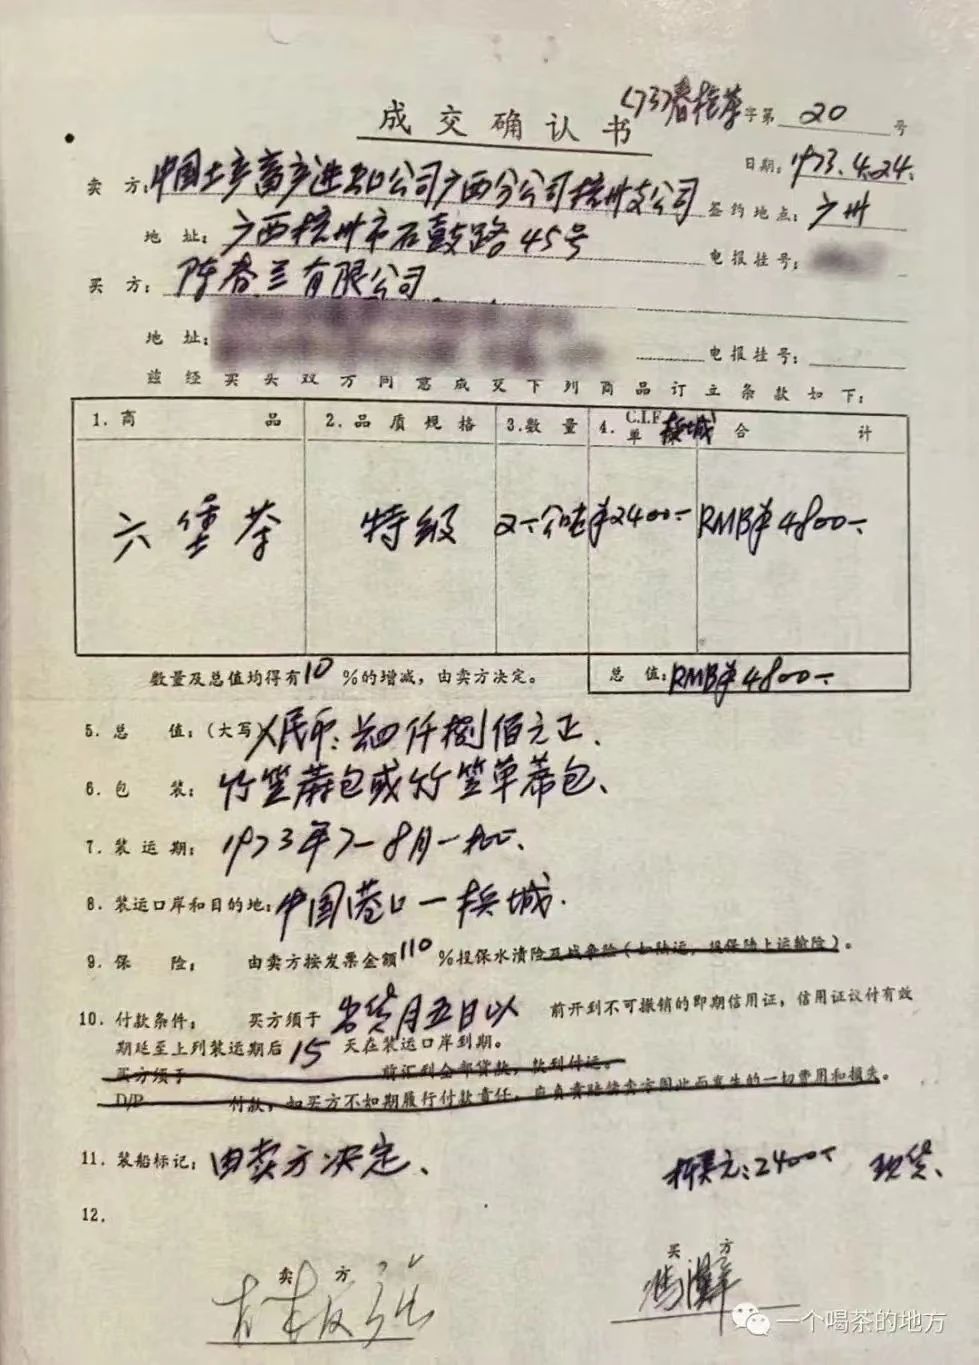 成交确认书
(73)春梧茶字第 20 号
日期: 1973.4.24.
卖方: 中国土产畜产进出口公司广西分公司梧州支公司 签约地点: 广州
地址: 广西梧州市石鼓路45号 电报挂号:
买方: 陈春兰有限公司
地址: 电报挂号:
兹经买卖双方同意成交下列商品订立条款如下:
1.商品 2.品质规格 3.数量 4. C.I.F. 槟城 单 合计
六堡茶 特级 2.-公吨 ¥2400.- RMB¥4800.-
数量及总值均得有10%的增减,由卖方决定。 总值: RMB¥4800.-
5.总值:(大写)人民币:肆仟捌佰元正、
6.包装: 竹笠蓆包或竹笠草蓆包、
7.装运期: 1973年7-8月-批、
8.装运口岸和目的地: 中国港口-槟城.
9.保险: 由卖方按发票金额110%投保水渍险及战争险(如陆运,投保陆上运输险)。
10.付款条件: 买方须于 出货月五日以 前开到不可撤销的即期信用证,信用证议付有效
期延至上列装运期后 15 天在装运口岸到期。
买方须于 前汇到全部货款,款到付运。
D/P 付款,如买方不如期履行付款责任,应负责赔偿卖方因此而产生的一切费用和损失。
11.装船标记: 由卖方决定、
折美元:2400.- 现货、
12.
卖方 买方
一个喝茶的地方